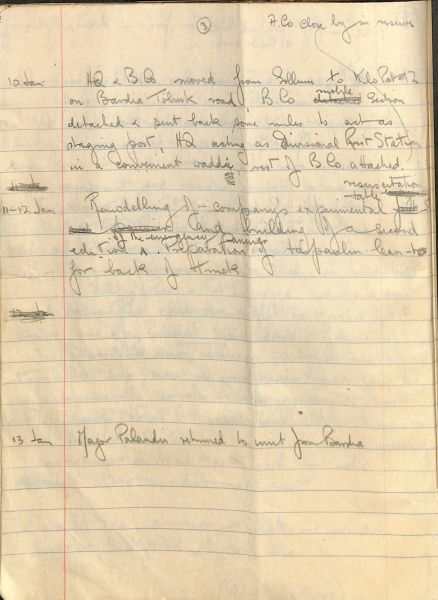 3
A. Co close by in reserve
10 Jan HQ & B. Co moved from Sollum to Kilo Post 13
on Bardia Tobruk road. B Co mobile detached Section
detached & sent back some miles to act as
staging post, HQ acting as Divisional Rest Station
in a convenient waddi & rest of B Co attached.
resuscitation
table
11-12 Jan Remodelling of company's experimental
and building of a second
of the emergency
edition. Preparation of tarpaulin lean-to
for back of truck
13 Jan Major Palandri returned to unit from Bardia